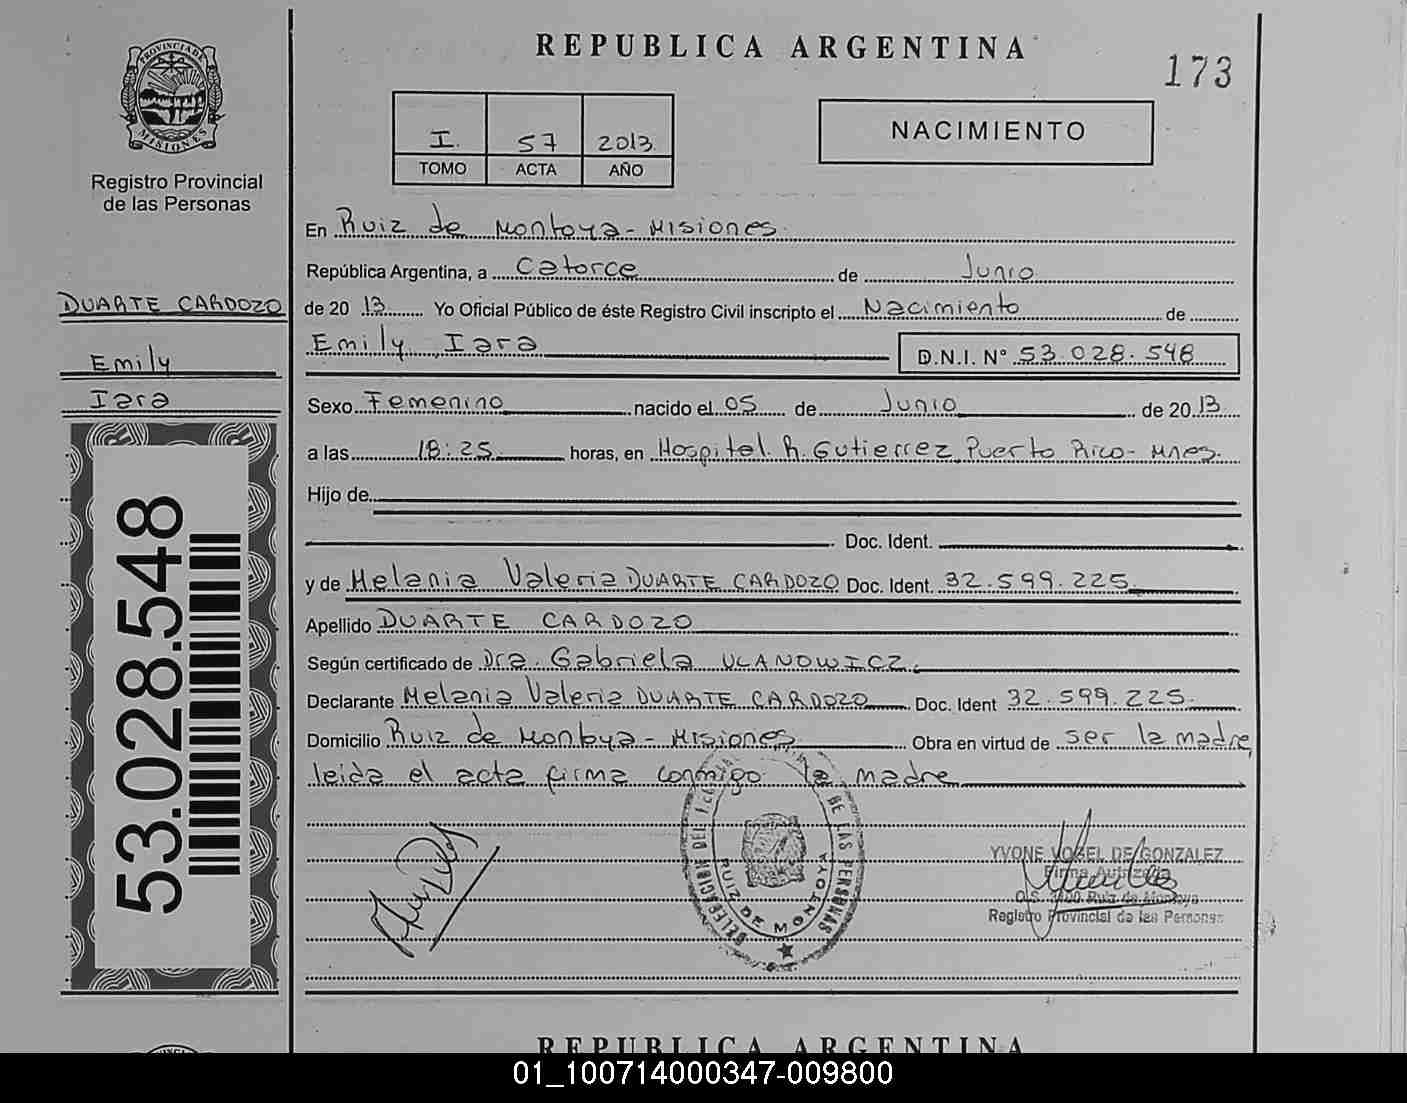 REPUBLICA ARGENTINA
173
PROVINCIA DE
MISIONES
Registro Provincial
de las Personas
I. 57 2013.
TOMO ACTA AÑO
NACIMIENTO
En Ruiz de Montoya - Misiones
República Argentina, a Catorce de Junio
de 20 13 Yo Oficial Público de éste Registro Civil inscripto el Nacimiento de
Emily Iara D.N.I. N° 53.028.548
DUARTE CARDOZO
Emily
Iara
53.028.548
Sexo Femenino nacido el 05 de Junio de 20 13
a las 18:25 horas, en Hospital R. Gutierrez Puerto Rico - Mnes.
Hijo de
Doc. Ident.
y de Melania Valeria DUARTE CARDOZO Doc. Ident. 32.599.225
Apellido DUARTE CARDOZO
Según certificado de Dra. Gabriela ULANOWICZ.
Declarante Melania Valeria DUARTE CARDOZO Doc. Ident 32.599.225
Domicilio Ruiz de Montoya - Misiones Obra en virtud de ser la madre,
leida el acta firma conmigo la madre
DELEGACION DEL DE LAS PERSONAS
RUIZ DE MONTOYA
YVONE VOGEL DE GONZALEZ
Firma Autorizada
O.S. Ruiz de Montoya
Registro Provincial de las Personas
REPUBLICA ARGENTINA
01_100714000347-009800